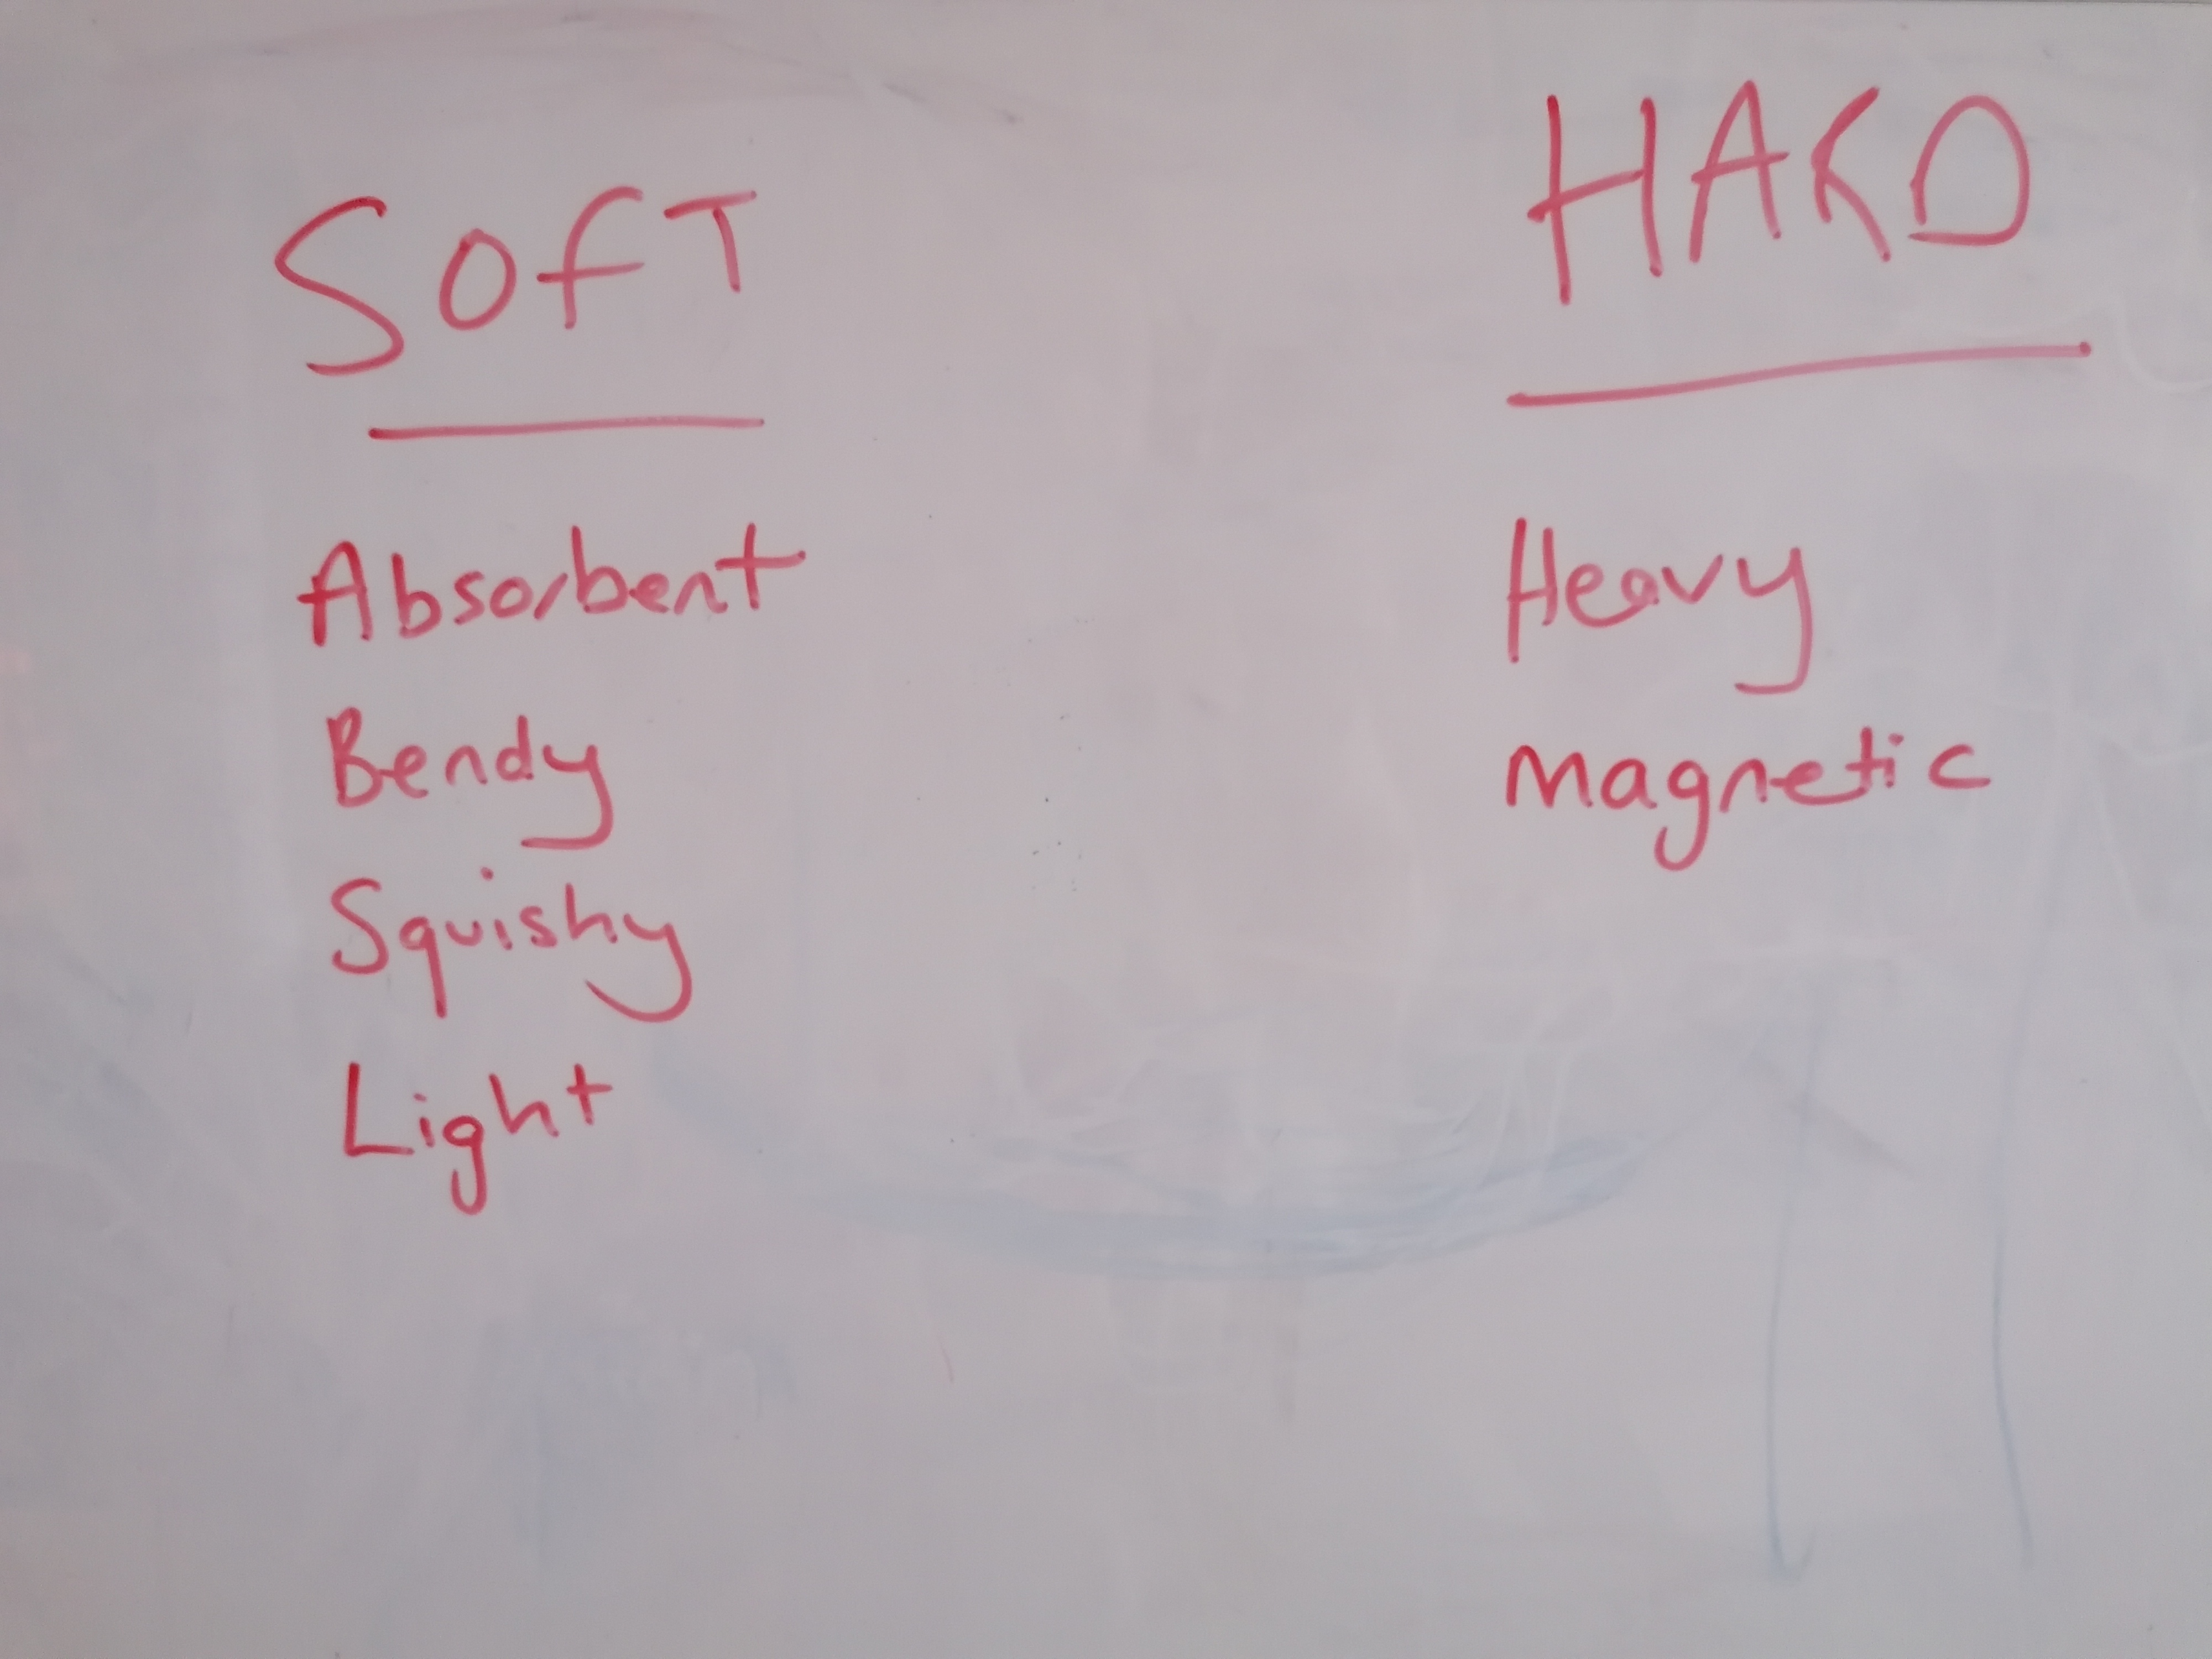 SOfT
Absorbent
Bendy
Squishy
Light
HARD
Heavy
Magnetic